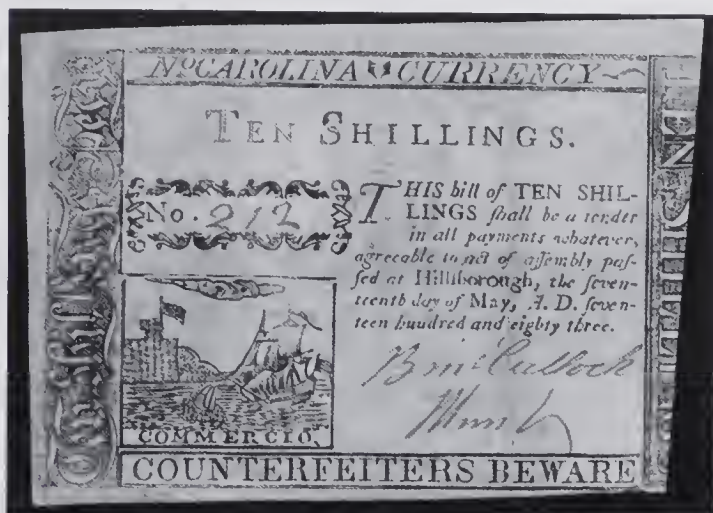 No CAROLINA CURRENCY
TEN SHILLINGS.
No. 212
THIS bill of TEN SHIL-
LINGS ſhall be a tender
in all payments whatever,
agreeable to act of aſſembly paſ-
ſed at Hillſborough, the ſeven-
teenth day of May, A. D. ſeven-
teen hundred and eighty three.
B McCulloch
COMMERCIO,
COUNTERFEITERS BEWARE
Ten Shillings
TEN SHILLINGS